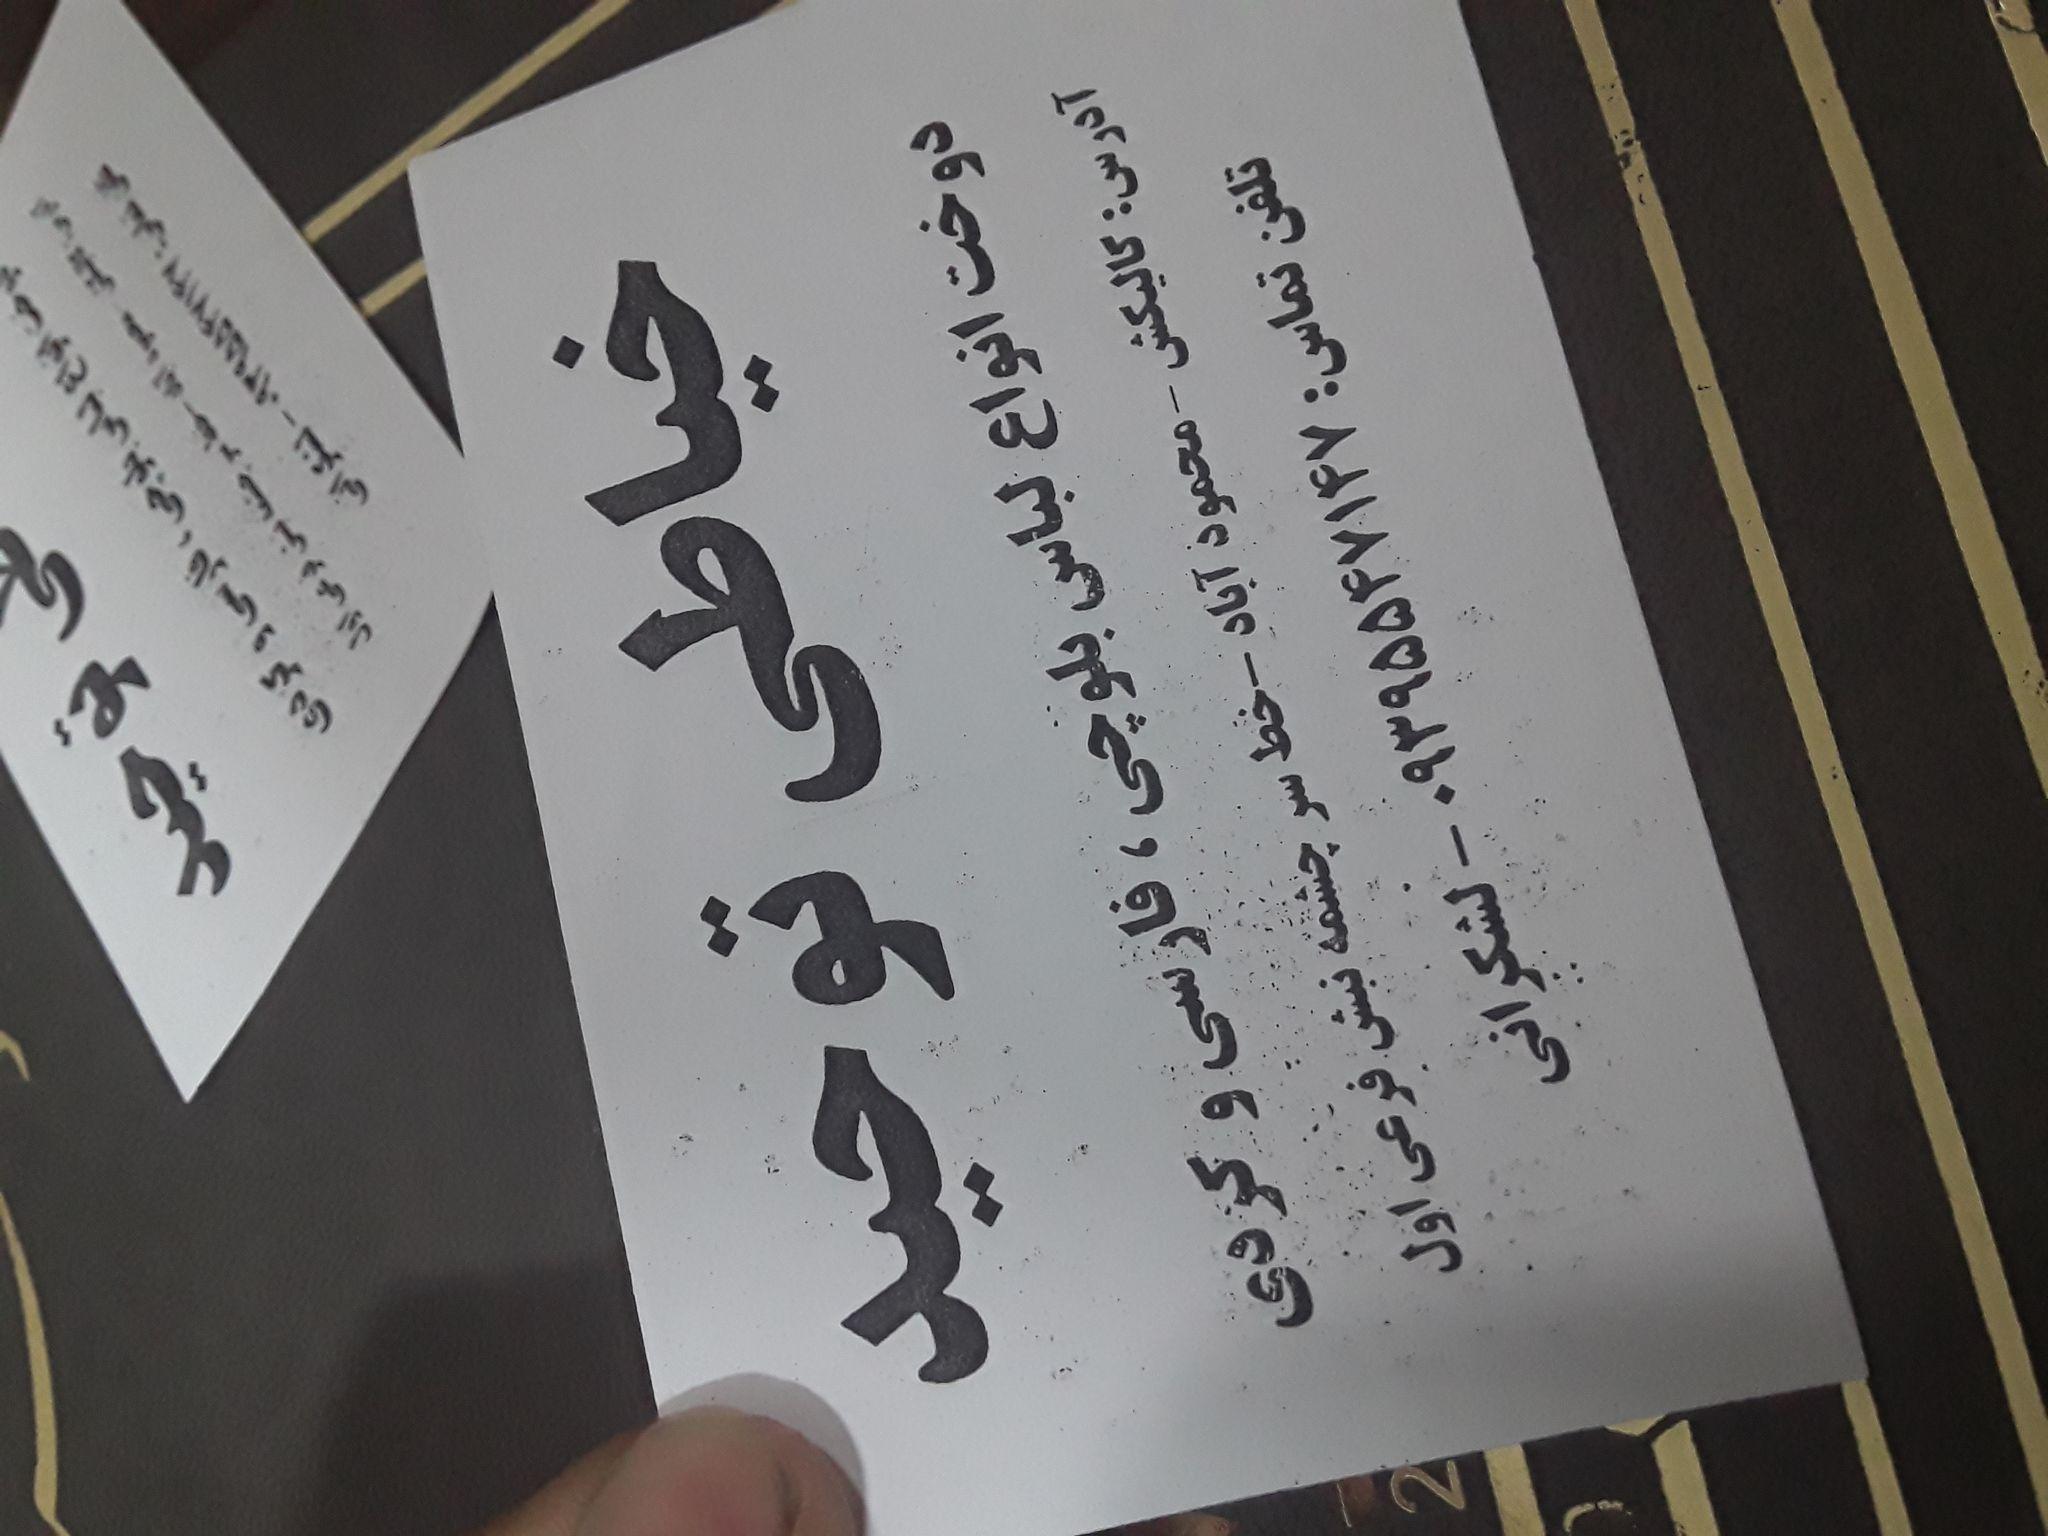 خیاطی توحید
دوخت انواع لباس بلوچی، فارسی و کردی
آدرس: گالیکش - محمود آباد - خط سر چشمه نبش فرعی اول
تلفن تماس: ۰۹۳۹۵۵۴۷۱۴۷ - لشکرانی
2